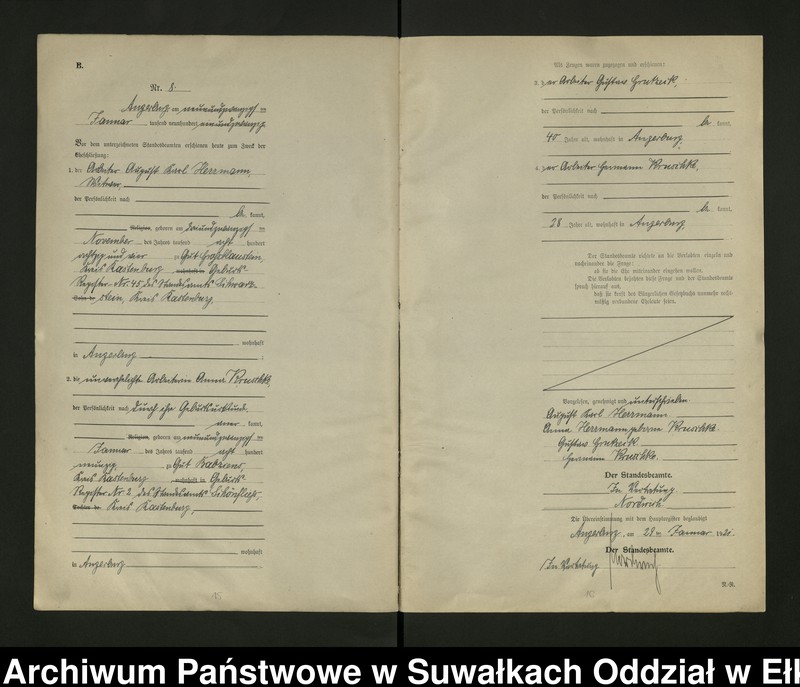 B.
Nr. 8.
Angerburg am neunundzwanzigsten
Januar tausend neunhundert einundzwanzig
Vor dem unterzeichneten Standesbeamten erschienen heute zum Zweck der
Eheschließung:
1. der Arbeiter August Karl Herrmann,
Witwer,
der Persönlichkeit nach
kannt,
Religion, geboren am dreiundzwanzigsten
November des Jahres tausend acht hundert
achtzig und vier zu Gut
Kreis Rastenburg, wohnhaft in Geburts-
Register Nr. 45 des Standesamts Schwarz-
stein, Kreis Rastenburg,
wohnhaft
in Angerburg
2. die unverehelichte Arbeiterin Anna
der Persönlichkeit nach durch ihre Geburtsurkunde
kannt,
Religion, geboren am neunundzwanzigsten
Januar des Jahres tausend acht hundert
neunzig zu Gut
Kreis Rastenburg wohnhaft in Geburts-
Register Nr. 2 des Standesamts Schönfließ,
Kreis Rastenburg,
wohnhaft
in Angerburg
15
Als Zeugen waren zugezogen und erschienen:
3. der Arbeiter Gustav
der Persönlichkeit nach
be kannt,
40 Jahre alt, wohnhaft in Angerburg,
4. der Arbeiter Hermann
der Persönlichkeit nach
be kannt,
28 Jahre alt, wohnhaft in Angerburg
Der Standesbeamte richtete an die Verlobten einzeln und
nacheinander die Frage:
ob sie die Ehe miteinander eingehen wollen.
Die Verlobten bejahten diese Frage und der Standesbeamte
sprach hierauf aus,
daß sie kraft des Bürgerlichen Gesetzbuchs nunmehr recht-
mäßig verbundene Eheleute seien.
Vorgelesen, genehmigt und unterschrieben
August Karl Herrmann
Anna Herrmann geborene
Gustav
Hermann
Der Standesbeamte.
In Vertretung
Die Übereinstimmung mit dem Hauptregister beglaubigt
Angerburg, am 29ten Januar 1921.
Der Standesbeamte.
In Vertretung
Archiwum Państwowe w Suwałkach Oddział w Ełk